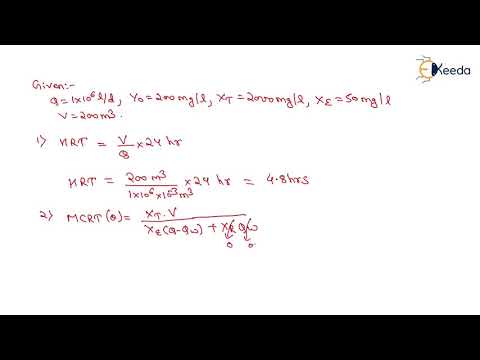 Keeda
Given:-
Q = 1×10⁶ l/d, Y₀ = 200 mg/l, X_T = 2000 mg/l, X_E = 50 mg/l
V = 200 m³.
1) HRT = V/Q × 24 hr
HRT = 200 m³/1×10⁶×10⁻³ m³ × 24 hr = 4.8 hrs
2) MCRT (θ) = X_T . V/X_E (Q-Qω) + X_R Qω
0 0